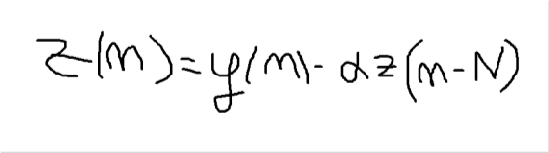 z(n)=y(n)-αz(n-N)